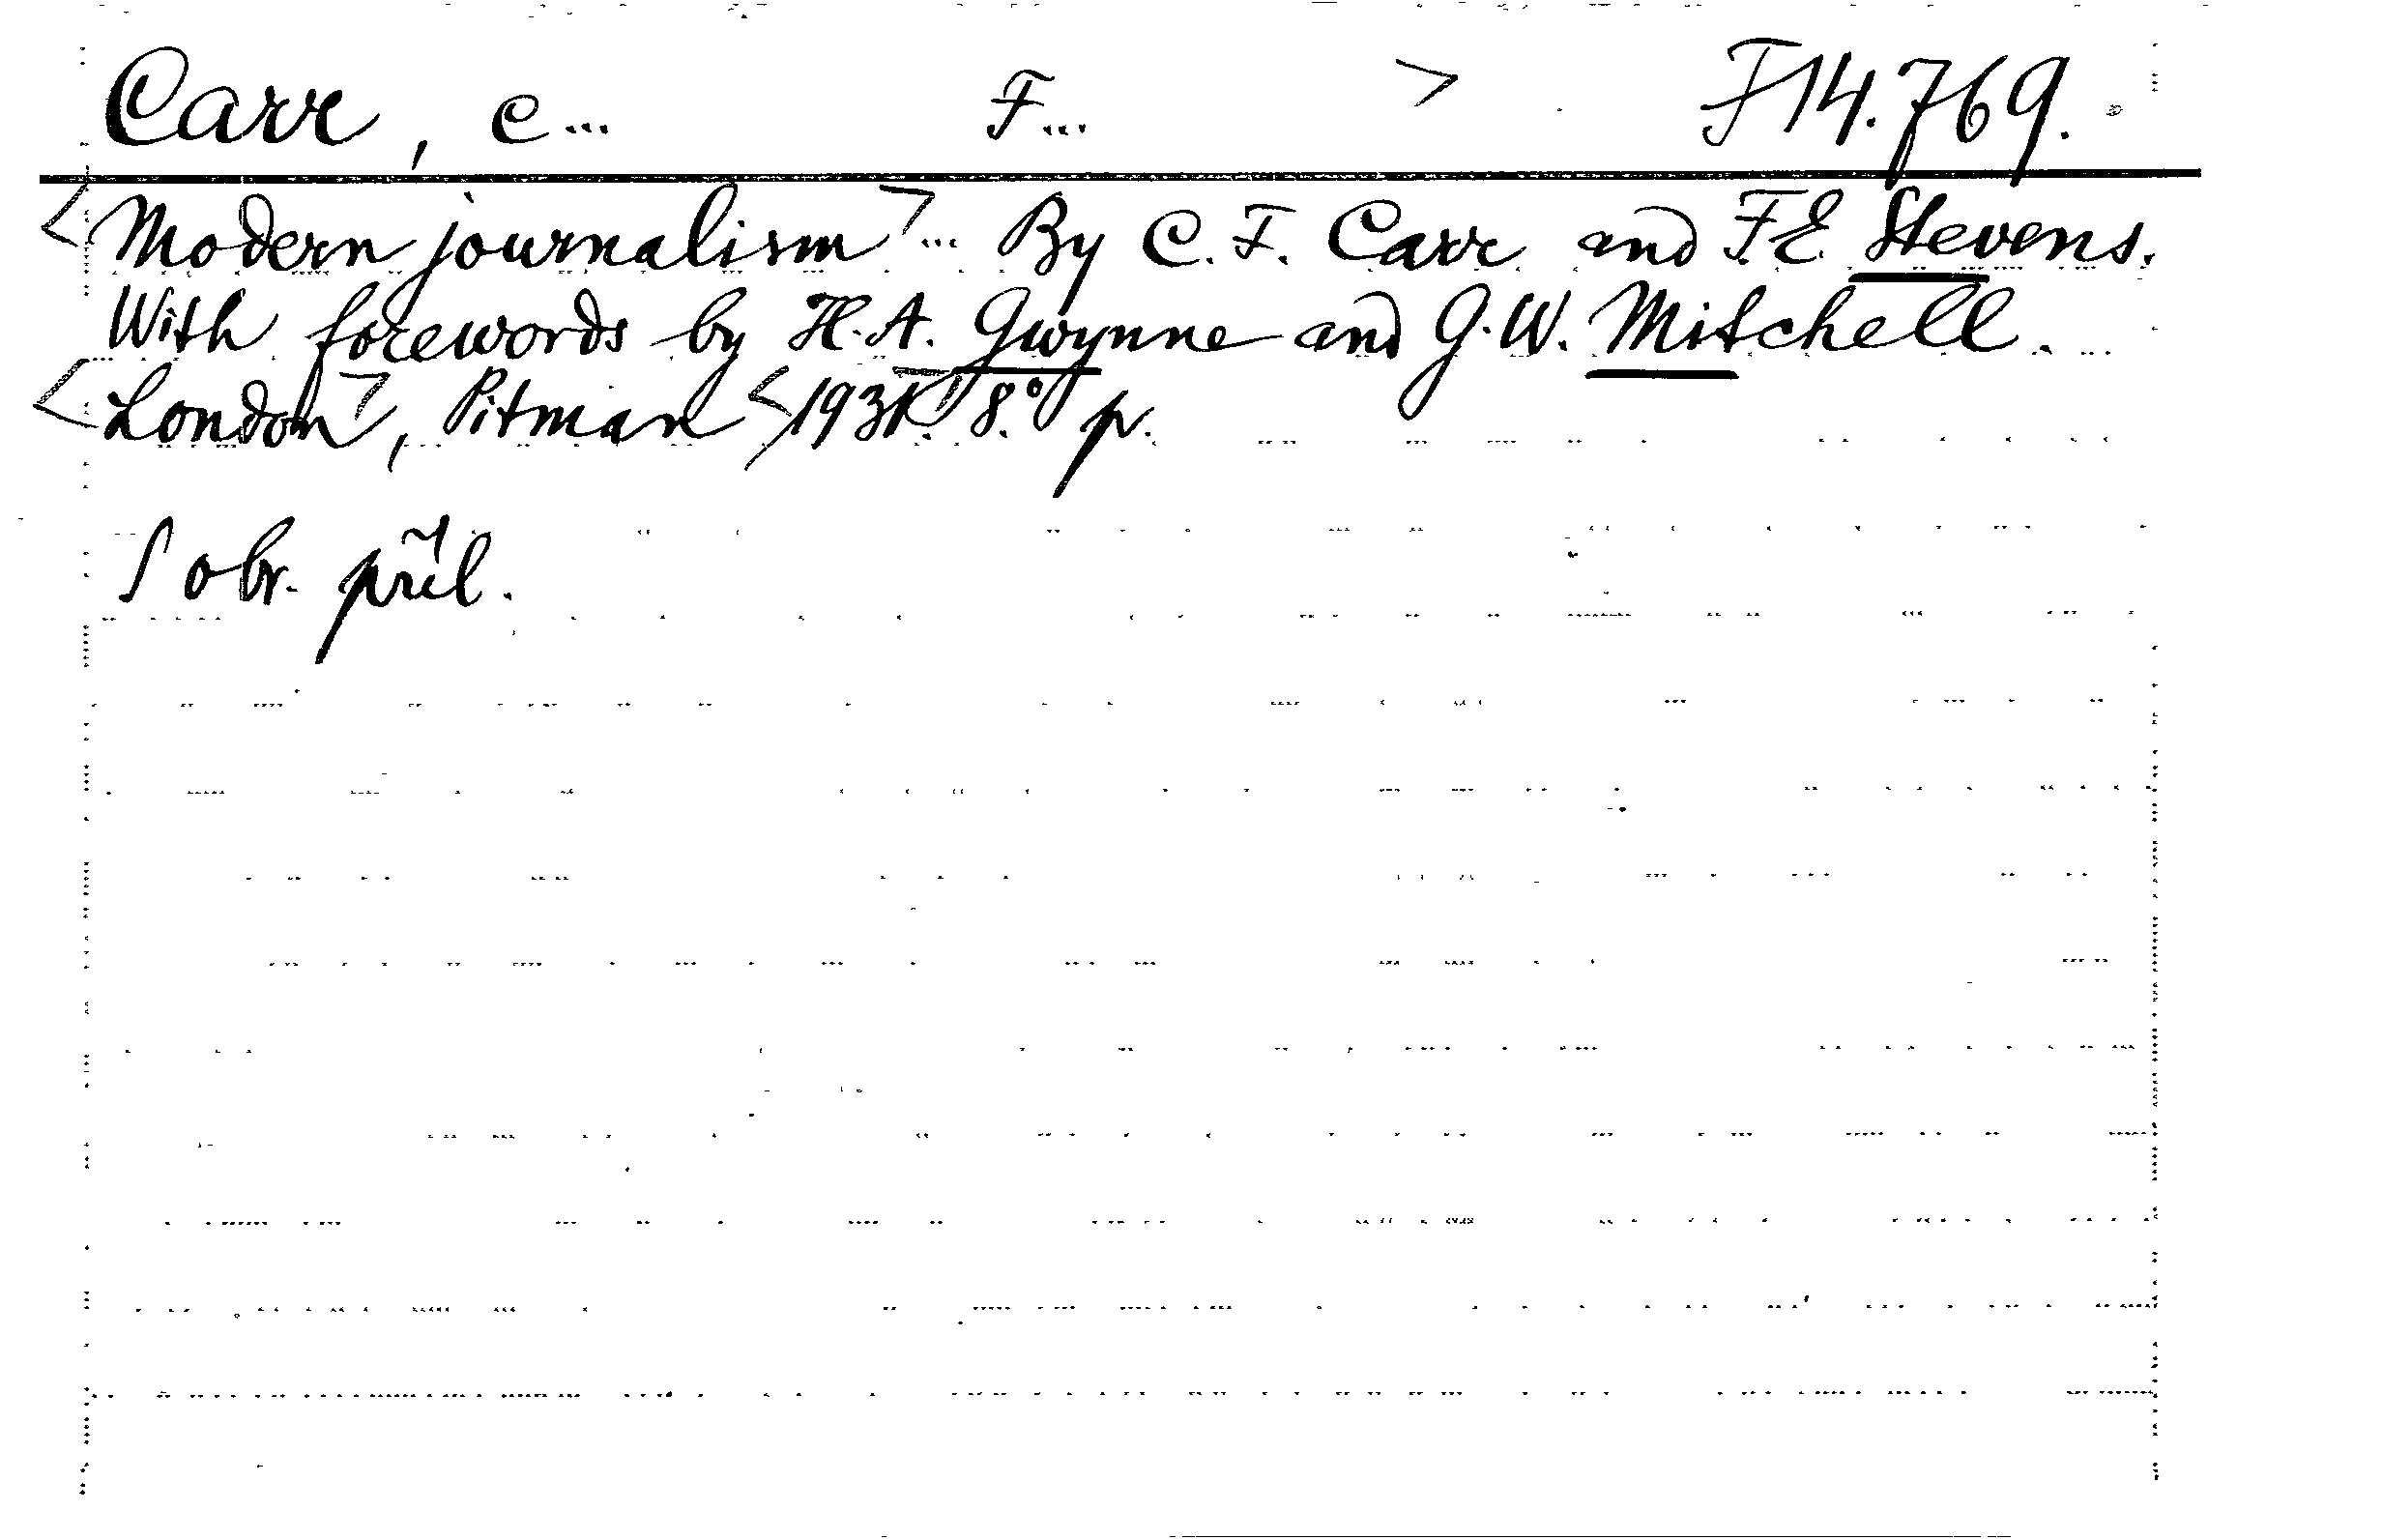 Carr, C... F... > F 14.769.
<Modern journalism>... By C. F. Carr and F. E. Stevens.
With forewords by H. A. Gwynne and G. W. Mitchell.
<London>, Pitman <1931.> 8.° p.
S obr. příl.